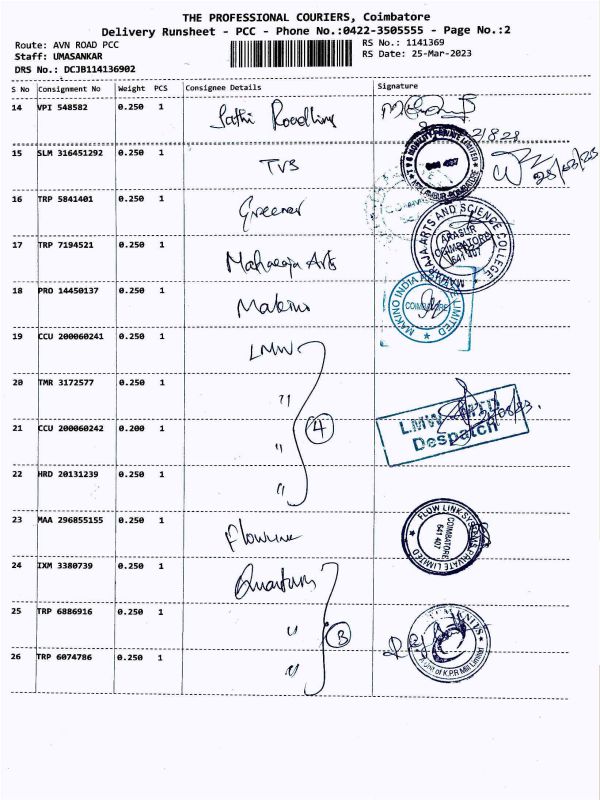 THE PROFESSIONAL COURIERS, Coimbatore
Delivery Runsheet - PCC - Phone No.:0422-3505555 - Page No.:2
Route: AVN ROAD PCC
RS No.: 1141369
Staff: UMASANKAR
RS Date: 25-Mar-2023
DRS No.: DCJB114136902
S No Consignment No Weight PCS Consignee Details Signature
14 VPI 548582 0.250 1 Sathi Roadlines
15 SLM 316451292 0.250 1 TVS
16 TRP 5841401 0.250 1 Greener
17 TRP 7194521 0.250 1 Maharaja Arts
MAHARAJA ARTS AND SCIENCE COLLEGE,
ARASUR
COIMBATORE
641 407
18 PRO 14450137 0.250 1 Makino
MAKINO INDIA PRIVATE LIMITED
COIMBATORE
19 CCU 200060241 0.250 1 LMW
20 TMR 3172577 0.250 1 "
21 CCU 200060242 0.200 1 "
4
LMW
Despatch
22 HRD 20131239 0.250 1 "
23 MAA 296855155 0.250 1 Flowline
FLOW LINK SYSTEMS PRIVATE LIMITED
COIMBATORE
641 407
24 IXM 3380739 0.250 1 Quantum
25 TRP 6886916 0.250 1 "
3
26 TRP 6074786 0.250 1 "
A Unit of K.P.R Mill Limited